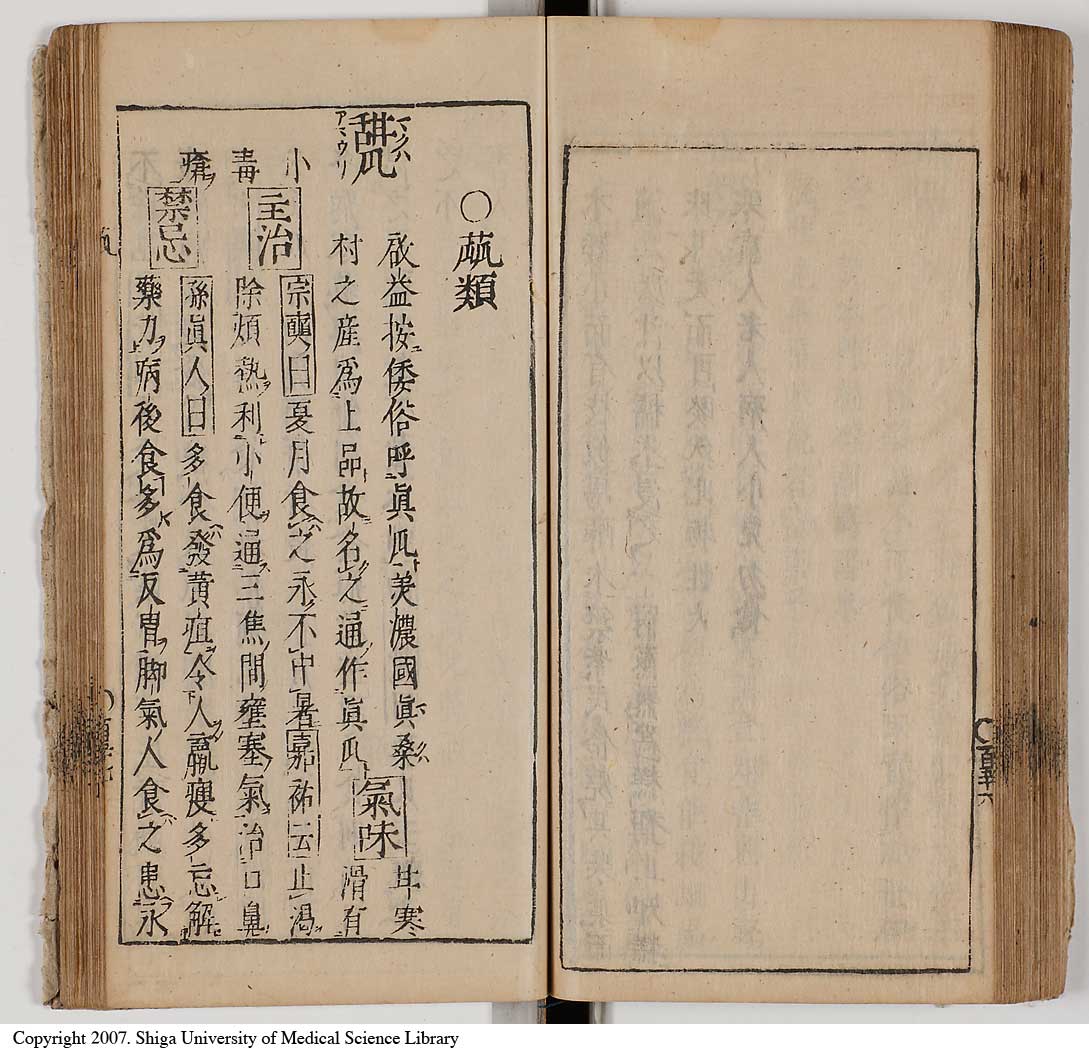 ○蓏類
甜瓜
アマウリ
啟益按倭俗呼眞瓜美濃國眞桑
村之産爲上品故名之通作眞瓜
氣味
甘寒
滑有
小
毒
主治
宗奭曰夏月食之永不中暑嘉祐云止渴
除煩熱利小便通三焦間壅塞氣治口鼻
瘡
禁忌
孫眞人曰多食發黃疸令人羸瘦多忘解
藥力病後食多爲反胃脚氣人食之患永
Copyright 2007. Shiga University of Medical Science Library